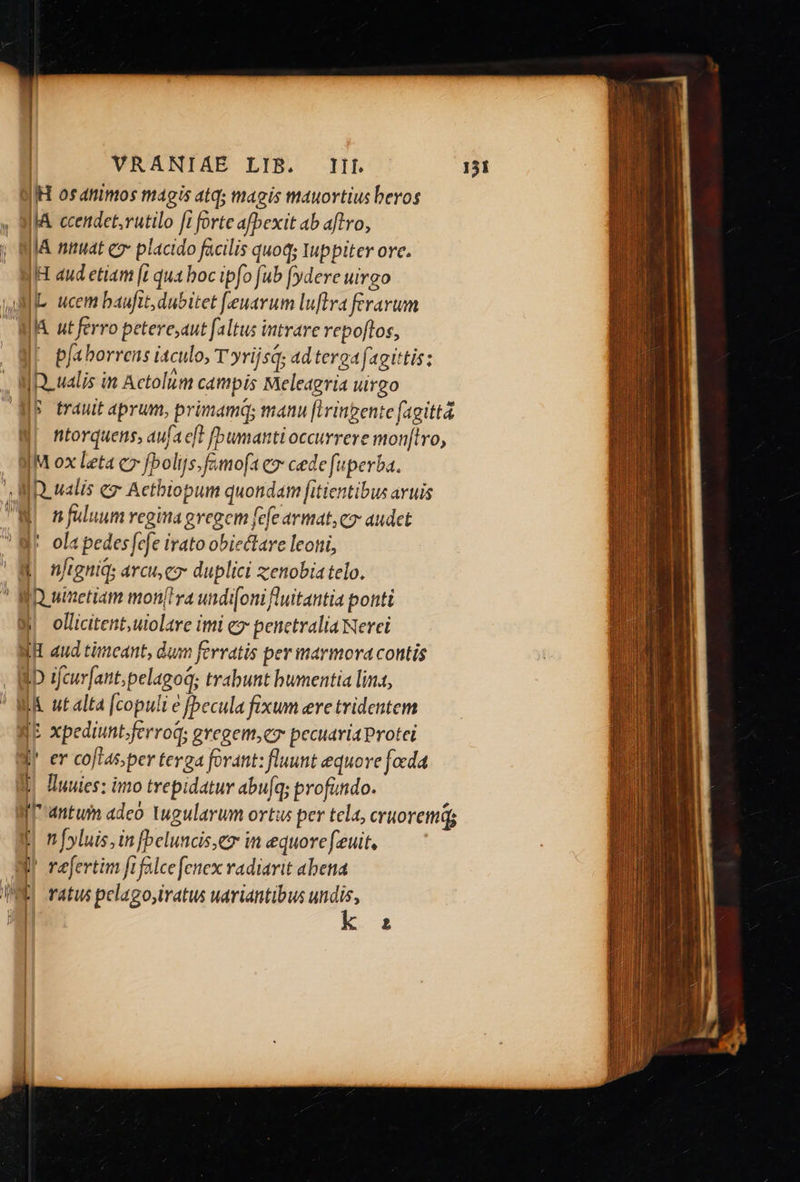 VRANIAE LIB. III. 131
H os animos magis atq; magis mauortius heros
A ccendet, rutilo si forte aspexit ab astro,
A nnuat & placido facilis quoq; Iuppiter ore.
H aud etiam si qua hoc ipso sub sydere uirgo
L ucem hausit, dubitet sæuarum lustra ferarum
A ut ferro petere, aut saltus intrare repostos,
I psa horrens iaculo, Tyrijsq; ad terga sagittis:
Q ualis in Aetolùm campis Meleagria uirgo
S trauit aprum, primamq; manu stringente sagittã
I ntorquens, ausa est spumanti occurrere monstro,
M ox læta & spolijs, famosa & cæde superba.
Q ualis & Aethiopum quondam sitientibus aruis
I n fuluum regina gregem sese armat, & audet
S ola pedes sese irato obiectare leoni,
I nsigniq; arcu, & duplici zenobia telo.
Q uin etiam monstra undisoni fluitantia ponti
S ollicitent, uiolare imi & penetralia Nerei
H aud timeant, dum ferratis per marmora contis
D iscursant, pelagoq; trahunt humentia lina,
A ut alta scopuli è specula fixum ære tridentem
E xpediunt, ferroq; gregem, & pecuaria Protei
P er costas, per terga forant: fluunt æquore fœda
I lluuies: imo trepidatur abusq; profundo.
T antum adeò Iugularum ortus per tela, cruoremq;
I n syluis, in speluncis, & in æquore sæuit,
P ræsertim si falce senex radiarit ahena
I ratus pelago, iratus uariantibus undis,
k 2